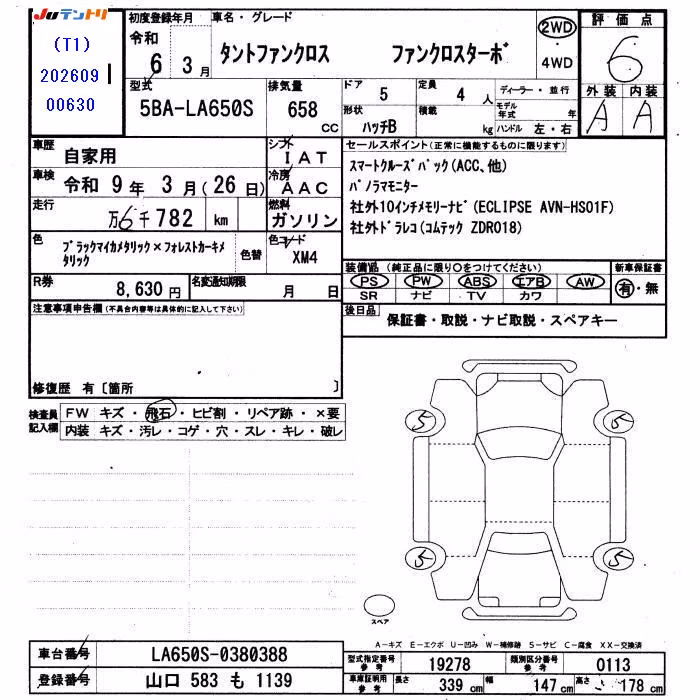 JUテントリ
(T1)
202609
00630
初度登録年月
令和
6 3月
車名・グレード
タントファンクロス ファンクロスターボ
2WD
・
4WD
評価点
6
外装 内装
A A
型式
5BA-LA650S
排気量
658
cc
ドア
5
定員
4 人
形状
ハッチB
積載
kg
ディーラー・並行
モデル年式 年
ハンドル 左・右
車歴
自家用
シフト
IAT
車検
令和 9年 3月(26日)
冷房
AAC
走行
万6千782 km
燃料
ガソリン
色
ブラックマイカメタリック×フォレストカーキメ
タリック
色替
色コード
XM4
R券
8,630円
名変通知期限
月 日
セールスポイント(正常に機能するものに限ります)
スマートクルーズパック(ACC、他)
パノラマモニター
社外10インチメモリーナビ(ECLIPSE AVN-HS01F)
社外ドラレコ(コムテック ZDR018)
装備品(純正品に限り○をつけてください)
PS PW ABS エアB AW
SR ナビ TV カワ
新車保証書
有・無
後日品
保証書・取説・ナビ取説・スペアキー
注意事項申告欄(不具合内容等は具体的に記入して下さい)
修復歴 有〔箇所 〕
検査員
記入欄
FW キズ・飛石・ヒビ割・リペア跡・×要
内装 キズ・汚レ・コゲ・穴・スレ・キレ・破レ
5 5
5 5
スペア
A-キズ E-エクボ U-凹み W-補修跡 S-サビ C-腐食 XX-交換済
車台番号
LA650S-0380388
登録番号
山口 583 も 1139
型式指定番号
参考
19278
類別区分番号
参考
0113
車庫証明用
参考
長さ
339 cm
幅
147 cm
高さ
178 cm